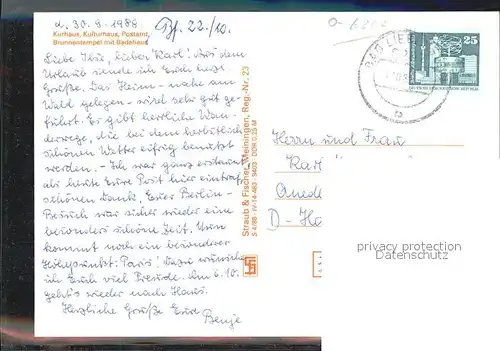 d. 30.9.1988
Bf. 22./10.
Kurhaus, Kulturhaus, Postamt,
Brunnentempel mit Badehaus
Liebe Ibu, lieber Karl! Aus dem
Urlaub sende ich Euch herzl.
Grüße. Das Heim - nahe am
Wald gelegen - wird sehr gut ge-
führt. Es gibt herrliche Wan-
derwege, die bei dem herbstlich
schönen Wetter eifrig benutzt
werden. - Ich war ganz erstaunt
als heute Eure Post hier eintraf,
schönen Dank. Euer Berlin-
Besuch war sicher wieder eine
besonders schöne Zeit. Nun
kommt noch ein besonderer
Höhepunkt: Paris! Dazu wünsche
ich Euch viel Freude. Am 6.10.
geht's wieder nach Haus.
Herzliche Grüße Eure
Straub & Fischer, Meiningen, Reg.-Nr. 23
S 4/88 · IV-14-483 · 9403 · DDR 0,25 M
BAD LIE
25
DEUTSCHE DEMOKRATISCHE REPUBLIK
b
Herrn und Frau
Karl
D-
privacy protection
Datenschutz